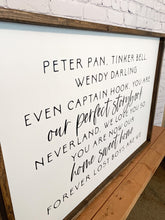 PETER PAN. TINKER BELL.
WENDY DARLING
EVEN CAPTAIN HOOK. YOU ARE
our perfect storybook
NEVERLAND. WE LOVE YOU SO
YOU ARE NOW OUR
home sweet home
FOREVER LOST BOYS ARE WE